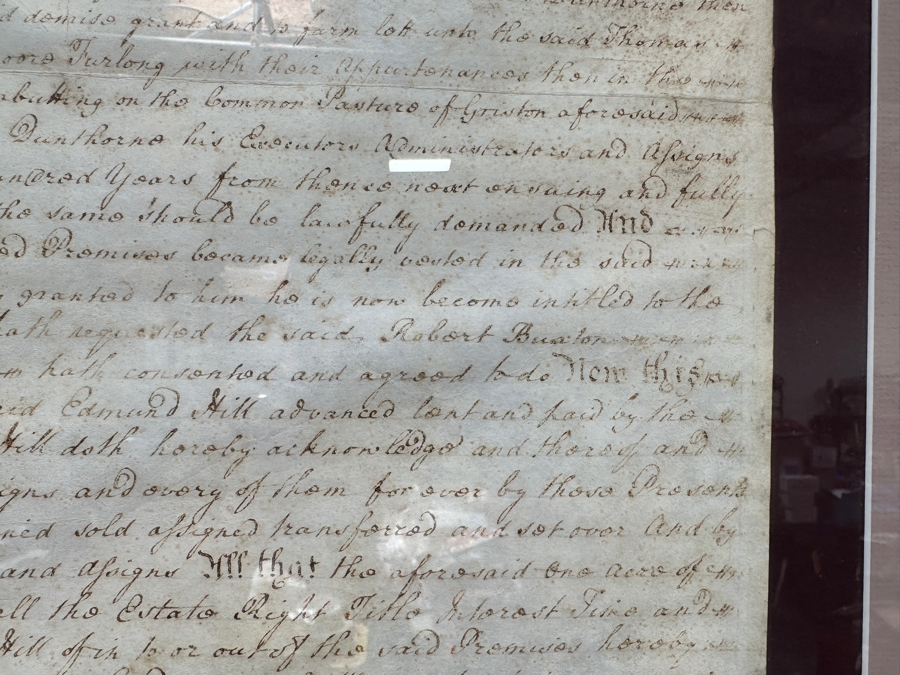 d demise grant and to farm lett unto the said Thomas
oore Furlong with their Appurtenances then in the
abutting on the Common Pasture of Griston aforesaid
Dunthorne his Executors Administrators and Assigns
undred Years from thence next ensuing and fully
the same should be lawfully demanded And
ed Premises became legally vested in the said
granted to him he is now become intitled to the
hath requested the said Robert Buxton
m hath consented and agreed to do Now this
aid Edmund Hill advanced lent and paid by the
Hill doth hereby acknowledge and thereof and
igns and every of them for ever by these Presents
ned sold assigned transferred and set over And by
and Assigns All that the aforesaid One acre of
all the Estate Right Title Interest Time and
Hill of in to or out of the said Premises hereby